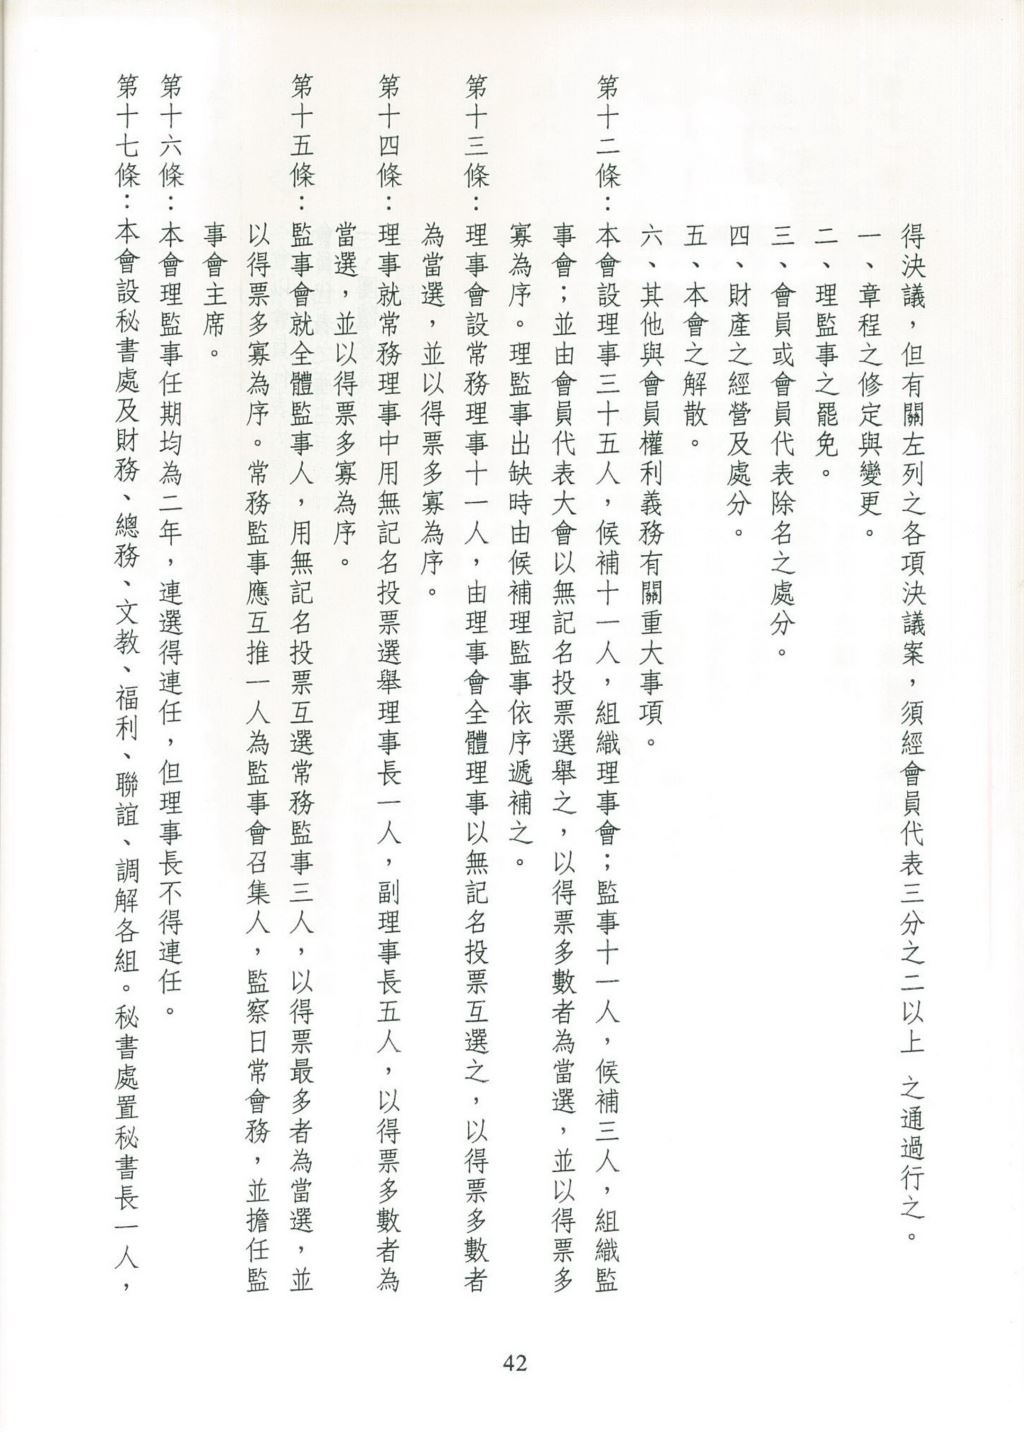 得決議，但有關左列之各項決議案，須經會員代表三分之二以上 之通過行之。
一、章程之修定與變更。
二、理監事之罷免。
三、會員或會員代表除名之處分。
四、財產之經營及處分。
五、本會之解散。
六、其他與會員權利義務有關重大事項。
第十二條：本會設理事三十五人，候補十一人，組織理事會；監事十一人，候補三人，組織監
事會；並由會員代表大會以無記名投票選舉之，以得票多數者為當選，並以得票多
寡為序。理監事出缺時由候補理監事依序遞補之。
第十三條：理事會設常務理事十一人，由理事會全體理事以無記名投票互選之，以得票多數者
為當選，並以得票多寡為序。
第十四條：理事就常務理事中用無記名投票選舉理事長一人，副理事長五人，以得票多數者為
當選，並以得票多寡為序。
第十五條：監事會就全體監事人，用無記名投票互選常務監事三人，以得票最多者為當選，並
以得票多寡為序。常務監事應互推一人為監事會召集人，監察日常會務，並擔任監
事會主席。
第十六條：本會理監事任期均為二年，連選得連任，但理事長不得連任。
第十七條：本會設秘書處及財務、總務、文教、福利、聯誼、調解各組。秘書處置秘書長一人，
42